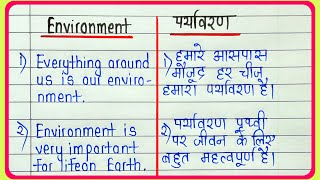 Environment
पर्यावरण
1) Everything around
us is out enviro-
nment.
1) हमारे आसपास
मौजूद हर चीज़
हमारा पर्यावरण है।
2) Environment is
very important
for lifeon Earth.
2) पर्यावरण पृथ्वी
पर जीवन के लिए
बहुत महत्वपूर्ण है।